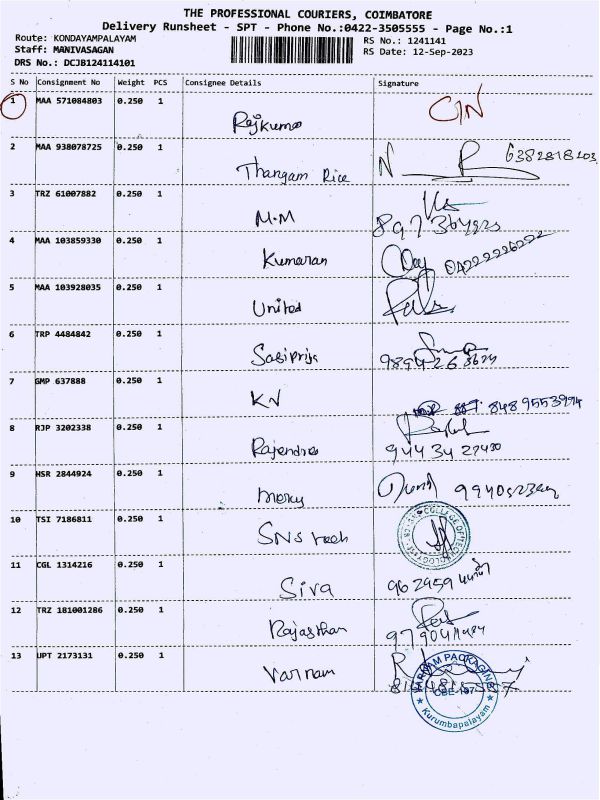 THE PROFESSIONAL COURIERS, COIMBATORE
Delivery Runsheet - SPT - Phone No.:0422-3505555 - Page No.:1
Route: KONDAYAMPALAYAM
RS No.: 1241141
Staff: MANIVASAGAN
RS Date: 12-Sep-2023
DRS No.: DCJB124114101
S No Consignment No Weight PCS Consignee Details Signature
1 MAA 571084803 0.250 1 Rajkumar
2 MAA 938078725 0.250 1 Thangam Rice 6382818203
3 TRZ 61007882 0.250 1 M.M
4 MAA 103859330 0.250 1 Kumaran
5 MAA 103928035 0.250 1 United
6 TRP 4484842 0.250 1 Sasipriya
7 GMP 637888 0.250 1 KN 8489553994
8 RJP 3202338 0.250 1 Rajendra 9443427430
9 HSR 2844924 0.250 1
10 TSI 7186811 0.250 1 SNS Tech
11 CGL 1314216 0.250 1 Siva
12 TRZ 181001286 0.250 1 Rajasthan
13 UPT 2173131 0.250 1 Varnam
VARNAM PACKAGING
CBE-107
Kurumbapalayam